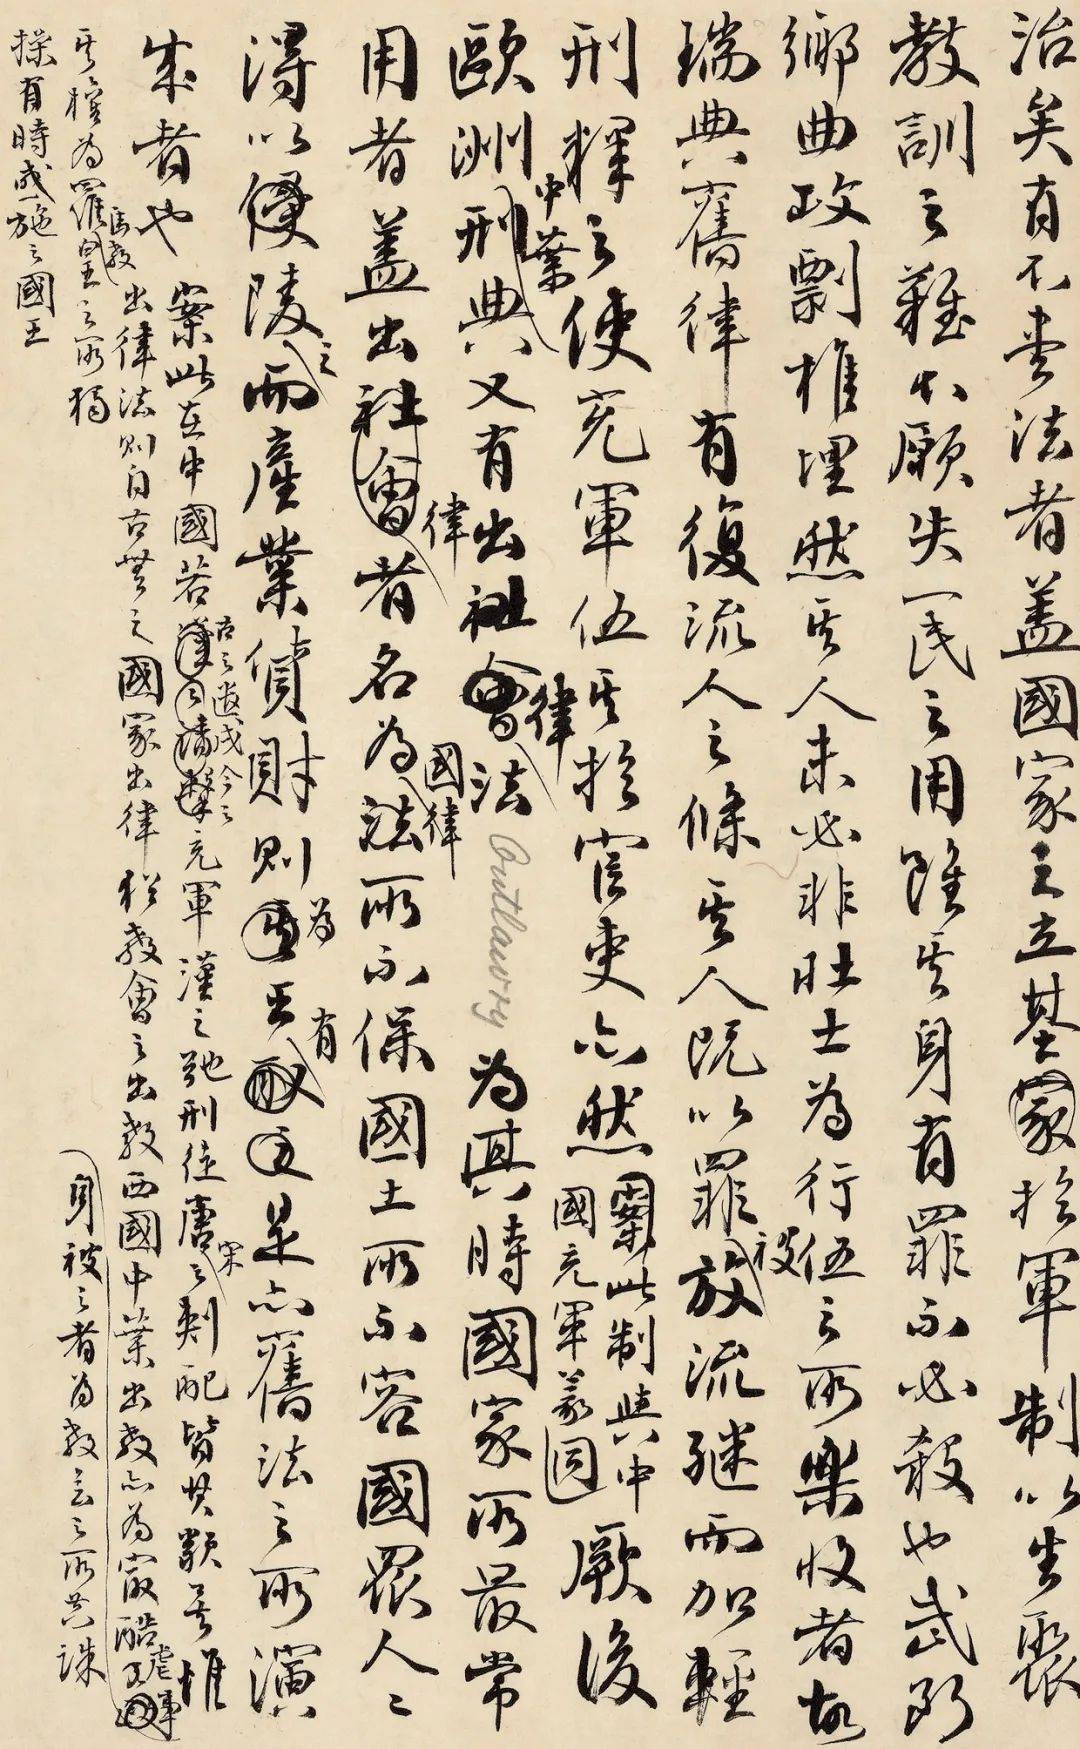 治矣有不盡法者蓋國家之立基家於軍制以生聚
教訓之難不願失一民之用雖其身有罪不必殺也武斷
鄉曲攻剽椎埋然其人未必非壯士為行伍之所樂收者故
瑞典舊律有復流人之條其人既以罪放流繼而加輕
被
刑釋之使充軍伍其於官吏亦然案此制與中
國充軍義同
厥後
中葉
歐洲刑典又有出社會法 Outlawry 為其時國家所最常
律
用者蓋出社會者名為法所不保國土所不容國眾人人
律
國律
得以侵陵而產業貨財則其王是亦舊法之所演
之
為
有
成者也案此在中國若充軍漢之弛刑徒唐之刺配皆其類若惟
古之遣戍今之
宋
出律法則自古無之國家出律猶教會之出教西國中葉出教亦為最酷
虐事
身被之者為教會之所共誅
其權為羅皇之所獨
馬教
操有時或施之國王